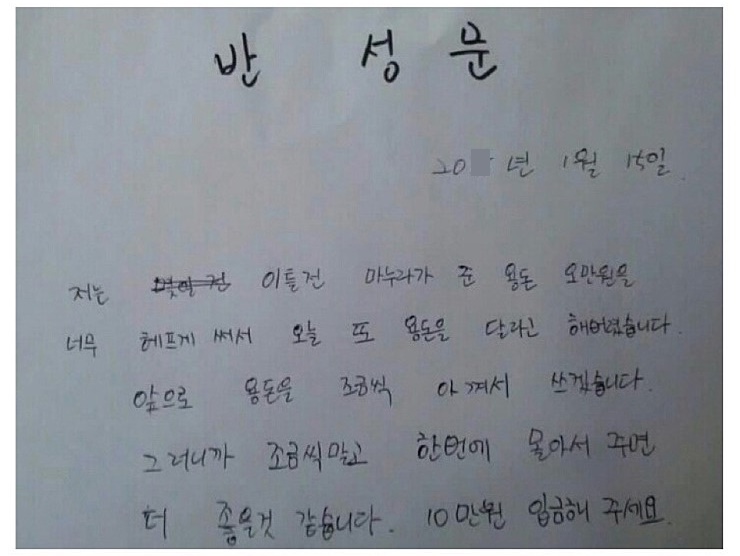 반 성 문
20 년 1월 15일.
저는 몇일전 이틀전 마누라가 준 용돈 오만원을
너무 헤프게 써서 오늘 또 용돈을 달라고 해버렸습니다.
앞으로 용돈을 조금씩 아껴서 쓰겠습니다.
그러니까 조금씩말고 한번에 몰아서 주면
더 좋을것 같습니다. 10만원 입금해 주세요.